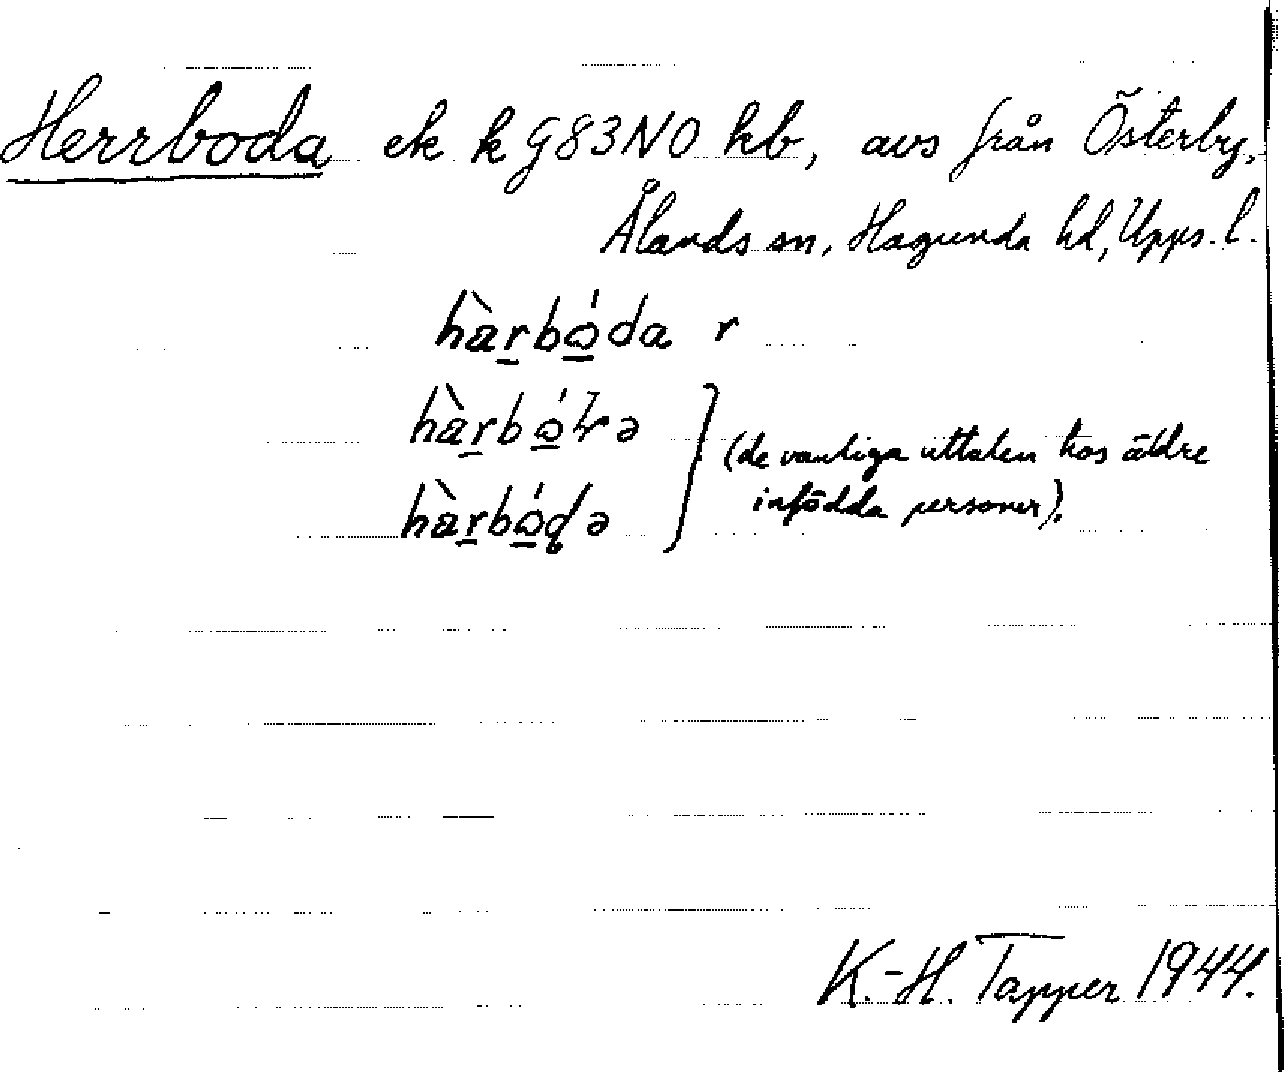 Herrboda ek k G83NO kb, avs från Österby,
Ålands sn, Hagunda hd, Upps. l.
hàr̲bó̲da r
(de vanliga uttalen hos äldre
infödda personer).
K.-H. Tapper 1944.